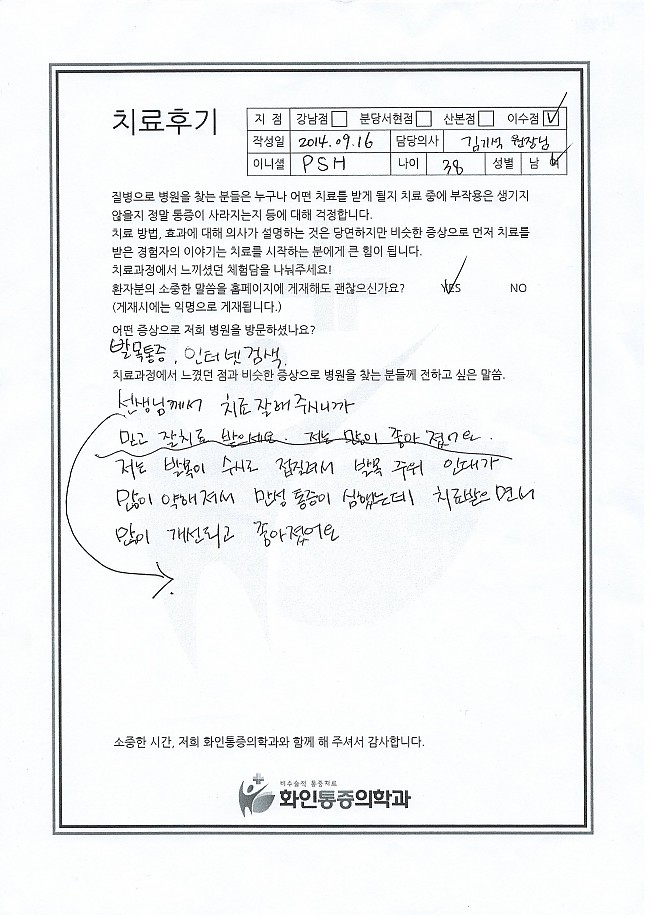 치료후기
지 점 강남점 분당서현점 산본점 이수점 V
작성일 2014.09.16 담당의사 김기석 원장님
이니셜 PSH 나이 38 성별 남 여
질병으로 병원을 찾는 분들은 누구나 어떤 치료를 받게 될지 치료 중에 부작용은 생기지
않을지 정말 통증이 사라지는지 등에 대해 걱정합니다.
치료 방법, 효과에 대해 의사가 설명하는 것은 당연하지만 비슷한 증상으로 먼저 치료를
받은 경험자의 이야기는 치료를 시작하는 분에게 큰 힘이 됩니다.
치료과정에서 느끼셨던 체험담을 나눠주세요!
환자분의 소중한 말씀을 홈페이지에 게재해도 괜찮으신가요? YES NO
(게재시에는 익명으로 게재됩니다.)
어떤 증상으로 저희 병원을 방문하셨나요?
발목통증, 인터넷검색.
치료과정에서 느꼈던 점과 비슷한 증상으로 병원을 찾는 분들께 전하고 싶은 말씀.
선생님께서 치료 잘해 주시니까
믿고 잘치료 받으세요. 저는 많이 좋아 졌어요.
저는 발목이 수시로 접질려서 발목 주위 인대가
많이 약해져서 만성 통증이 심했는데 치료받으면서
많이 개선되고 좋아졌어요
소중한 시간, 저희 화인통증의학과와 함께 해 주셔서 감사합니다.
비수술적 통증치료
화인통증의학과